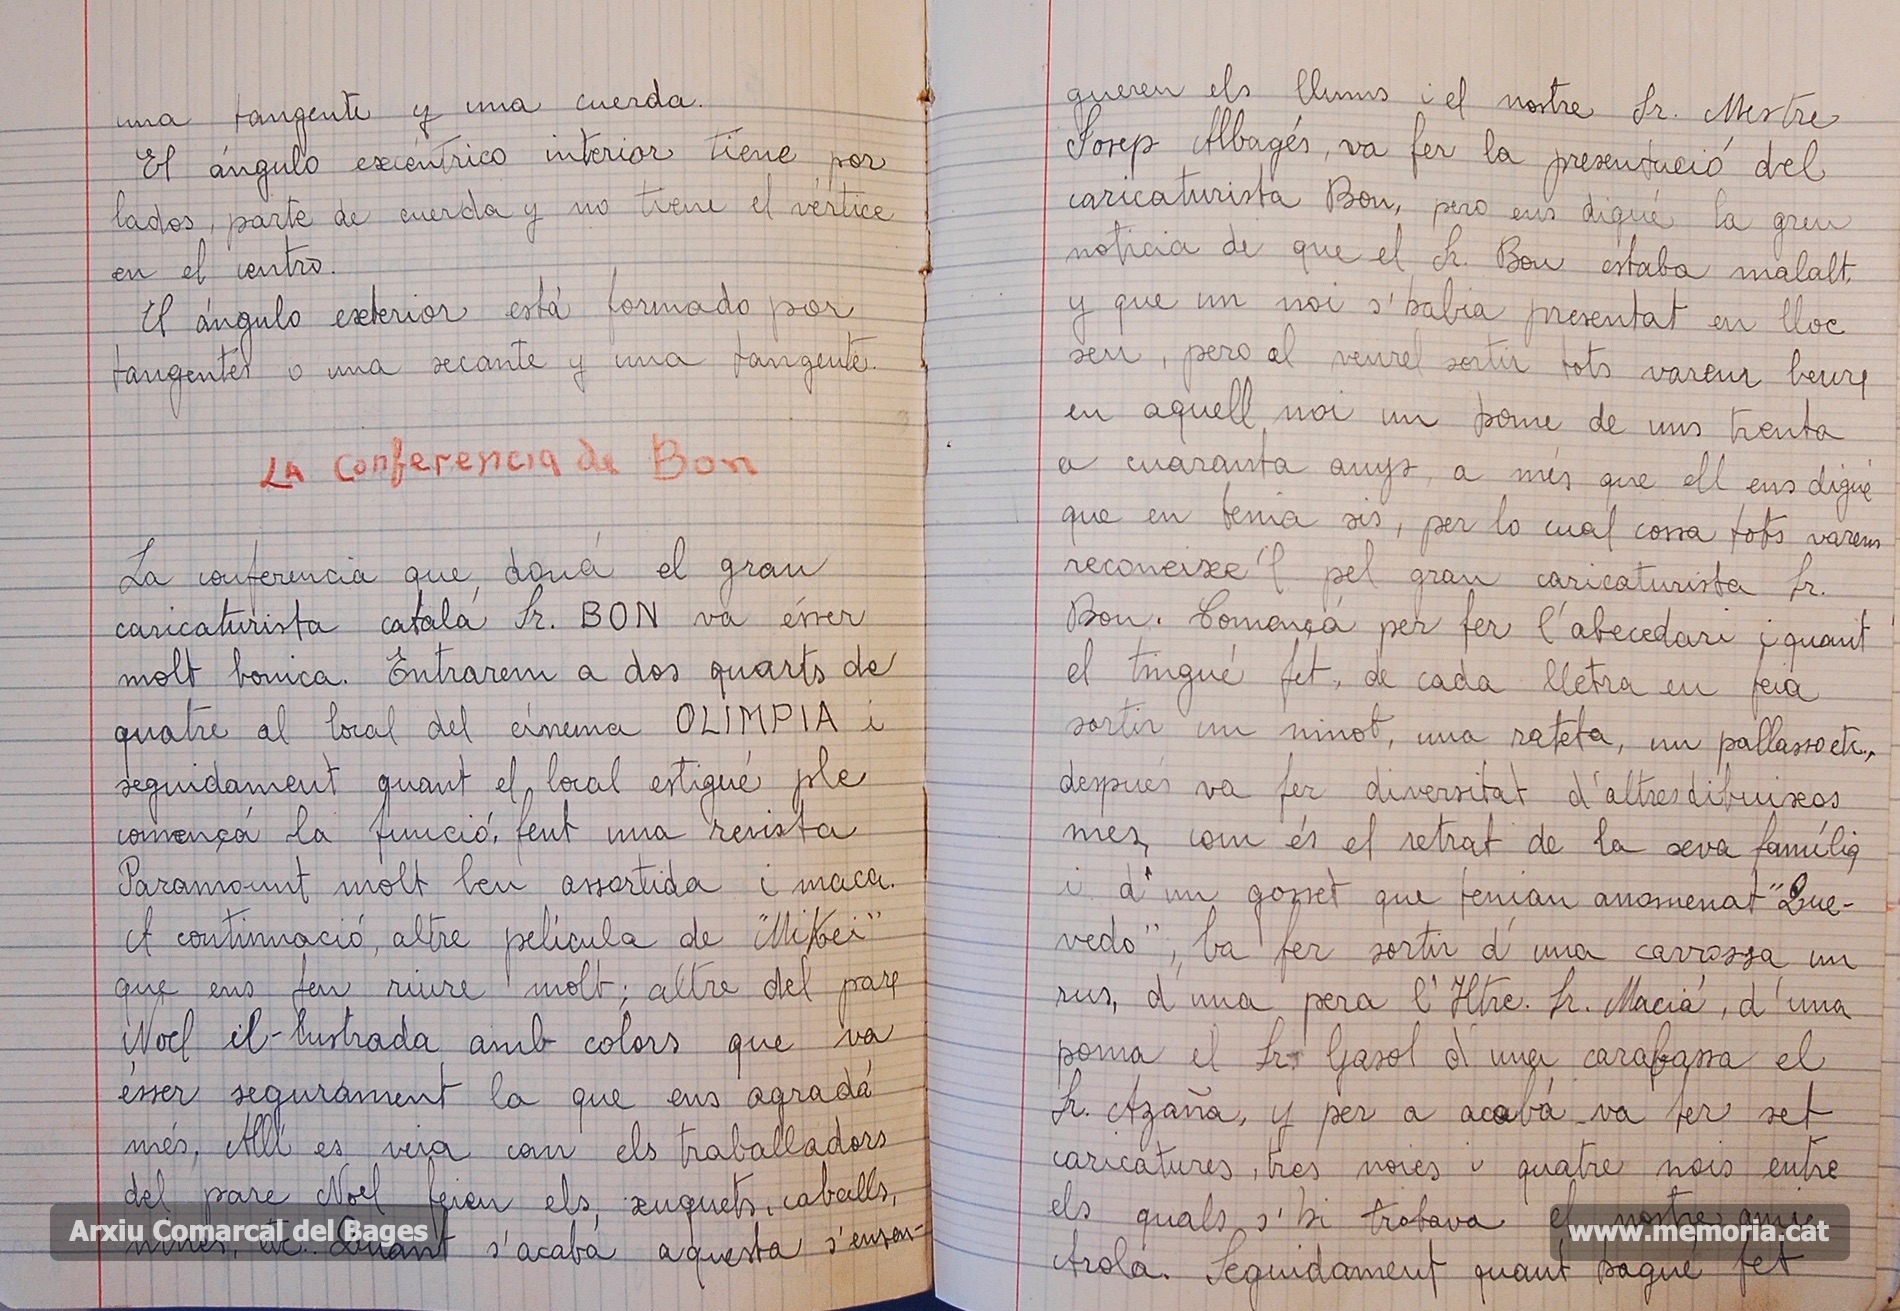 una tangente y una cuerda.
El ángulo excéntrico interior tiene por
lados, parte de cuerda y no tiene el vértice
en el centro.
El ángulo exterior está formado por
tangentes o una secante y una tangente.
LA Conferencia de Bon
La conferencia que doná el gran
caricaturista catalá Sr. BON va ésser
molt bonica. Entrarem a dos quarts de
quatre al local del cinema OLIMPIA i
seguidament quant el local estigué ple
començá la funció, fent una revista
Paramount molt ben assortida i maca.
A continuació, altre película de "Mikei"
que ens feu riure molt; altre del pare
Noel il-lustrada amb colors que va
ésser segurament la que ens agradá
més, Allí es veia com els traballadors
del pare Noel feien els, xuquets, caballs,
nines, etc.. Quant s'acabá aquesta s'ensen-
gueren els llums i el nostre Sr. Mestre
Josep Albagés, va fer la presentació del
caricaturista Bon, pero ens digué la greu
noticia de que el Sr. Bon estaba malalt,
y que un noi s'habia presentat en lloc
seu, pero al veurel sortir tots varem beure
en aquell noi un home de uns trenta
a cuaranta anys, a més que ell ens digué
que en tenia sis, per lo cual cossa tots varems
reconeixe'l pel gran caricaturista Sr.
Bon. Començá per fer l'abecedari i quant
el tingué fet, de cada lletra en feia
sortir un ninot, una rateta, un pallasso etc.,
después va fer diversitat d'altres dibuixos
mes, com és el retrat de la seva família
i d'un gosset que tenian anomenat "Que-
vedo", ba fer sortir d'una carrossa un
rus, d'una pera l'Iltre. Sr. Maciá, d'una
poma el Sr. Gasol d'una carabassa el
Sr. Azaña, y per a acabá va fer set
caricatures, tres noies i quatre nois entre
els quals s'hi trobava el nostre amic
Arolá. Seguidament quant hagué fet
Arxiu Comarcal del Bages
www.memoria.cat